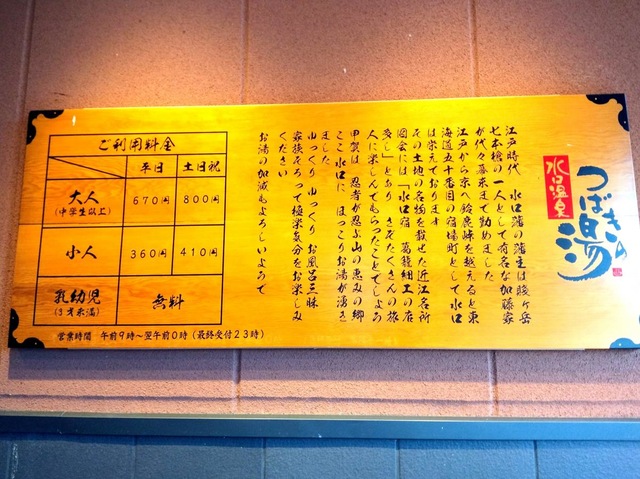 水口温泉
つばきの湯
江戸時代 水口藩の藩主は賤ヶ岳
七本槍の一人として有名な加藤家
が代々幕末まで勤めました
江戸から京へ鈴鹿峠を越えると東
海道五十番目の宿場町として水口
は栄えております
その土地の名物を載せた近江名所
図会には「水口宿 葛籠細工の店
多し」とあり さぞたくさんの旅
人に楽しんでもらったことでしょう
甲賀は 忍者が忍ぶ山の恵みの郷
ここ 水口に ほっこりお湯が湧き
ました
ゆっくり ゆっくり お風呂三昧
家族そろって極楽気分をお楽しみ
ください
お湯の加減もよろしいようで
ご利用料金
平日 土日祝
大人 670円 800円
(中学生以上)
小人 360円 410円
乳幼児 無料
(3才未満)
営業時間 午前9時～翌午前0時(最終受付23時)